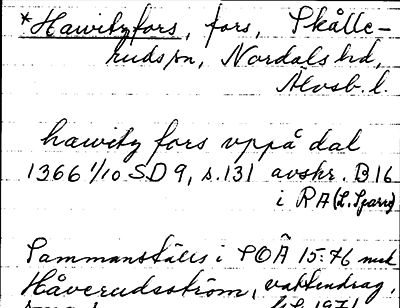 *Hawityfors, fors, Skålle-
rudssn, Nordals hd,
Älvsb. l.
hawity fors vppå dal
1366 1/10 SD 9, s. 131 avskr. B 16
i RA (L. Sparre)
Sammanställs i SOÄ 15:76 med
Håverudsström, vattendrag,
1971